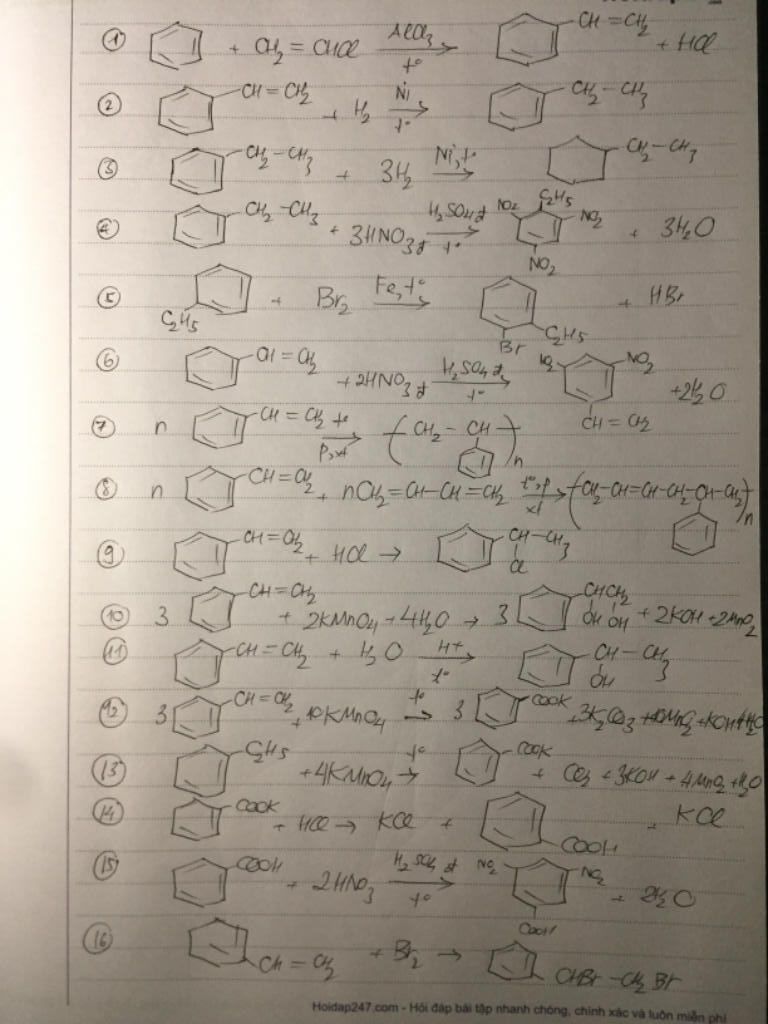 ① + CH₂ = CHCl AlCl₃ t° CH = CH₂ + HCl
② CH = CH₂ + H₂ Ni t° CH₂ – CH₃
③ CH₂ – CH₃ + 3H₂ Ni, t° CH₂ – CH₃
④ CH₂ – CH₃ + 3HNO₃ đ H₂SO₄ đ t° NO₂ C₂H₅ NO₂ NO₂ + 3H₂O
⑤ C₂H₅ + Br₂ Fe, t° Br C₂H₅ + HBr
⑥ CH = CH₂ + 2HNO₃ đ H₂SO₄ đ t° NO₂ CH = CH₂ + 2H₂O
⑦ n CH = CH₂ t° p, xt ( CH₂ – CH )n
⑧ n CH = CH₂ + nCH₂ = CH – CH = CH₂ t°, p xt ( CH₂ – CH = CH – CH₂ – CH – CH₂ )n
⑨ CH = CH₂ + HCl → CH – CH₃ Cl
⑩ 3 CH = CH₂ + 2KMnO₄ + 4H₂O → 3 CHCH₂ OH OH + 2KOH + 2MnO₂
⑪ CH = CH₂ + H₂O H⁺ t° CH – CH₃ OH
⑫ 3 CH = CH₂ + 10KMnO₄ t° 3 COOK + 3K₂CO₃ + 10MnO₂ + KOH + 4H₂O
⑬ C₂H₅ + 4KMnO₄ t° COOK + + 3KOH + 4MnO₂ + H₂O
⑭ COOK + HCl → KCl + COOH + KCl
⑮ COOH + 2HNO₃ H₂SO₄ đ t° NO₂ NO₂ COOH + 2H₂O
⑯ CH = CH₂ + Br₂ → CHBr – CH₂Br
Hoidap247.com - Hỏi đáp bài tập nhanh chóng, chính xác và luôn miễn phí